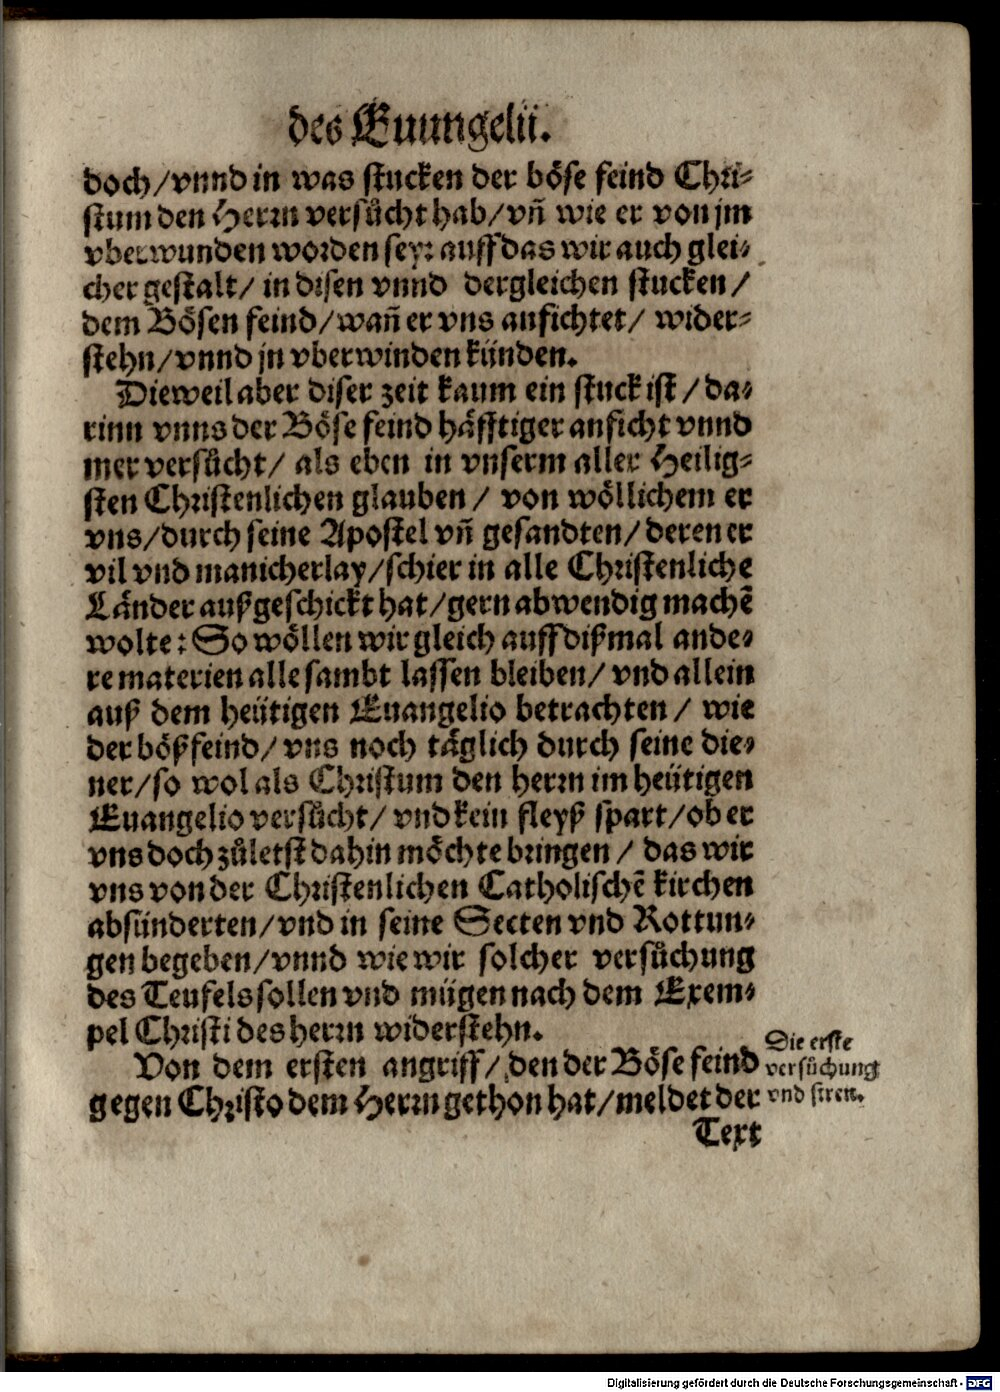 des Euungelii.
doch/vnnd in was stucken der böse feind Chri-
stum den Herrn versůcht hab/vñ wie er von jm
vberwunden worden sey: auff das wir auch glei-
cher gestalt/ in disen vnnd dergleichen stucken/
dem Bösen feind/wañ er vns anfichtet/ wider-
stehn/vnnd jn vberwinden künden.
Dieweil aber diser zeit kaum ein stuck ist/da-
rinn vnns der Böse feind häfftiger anficht vnnd
mer versůcht/ als eben in vnserm aller Heilig-
sten Christenlichen glauben/ von wöllichem er
vns/durch seine Apostel vñ gesandten/deren er
vil vnd manicherlay/schier in alle Christenliche
Länder außgeschickt hat/gern abwendig machẽ
wolte: So wöllen wir gleich auff dißmal ande-
re materien alle sambt lassen bleiben/ vnd allein
auß dem heütigen Euangelio betrachten/ wie
der böß feind/ vns noch täglich durch seine die-
ner/so wol als Christum den herrn im heütigen
Euangelio versůcht/ vnd kein fleyß spart/ob er
vns doch zůletst dahin möchte bringen/ das wir
vns von der Christenlichen Catholischẽ kirchen
absünderten/vnd in seine Secten vnd Rottun-
gen begeben/vnnd wie wir solcher versůchung
des Teufels sollen vnd mügen nach dem Exem-
pel Christi des herrn widerstehn.
Von dem ersten angriff/ den der Böse feind
gegen Christo dem Herrn gethon hat/meldet der
Die erste
versůchung
vnd stren.
Text
Digitalisierung gefördert durch die Deutsche Forschungsgemeinschaft - DFG